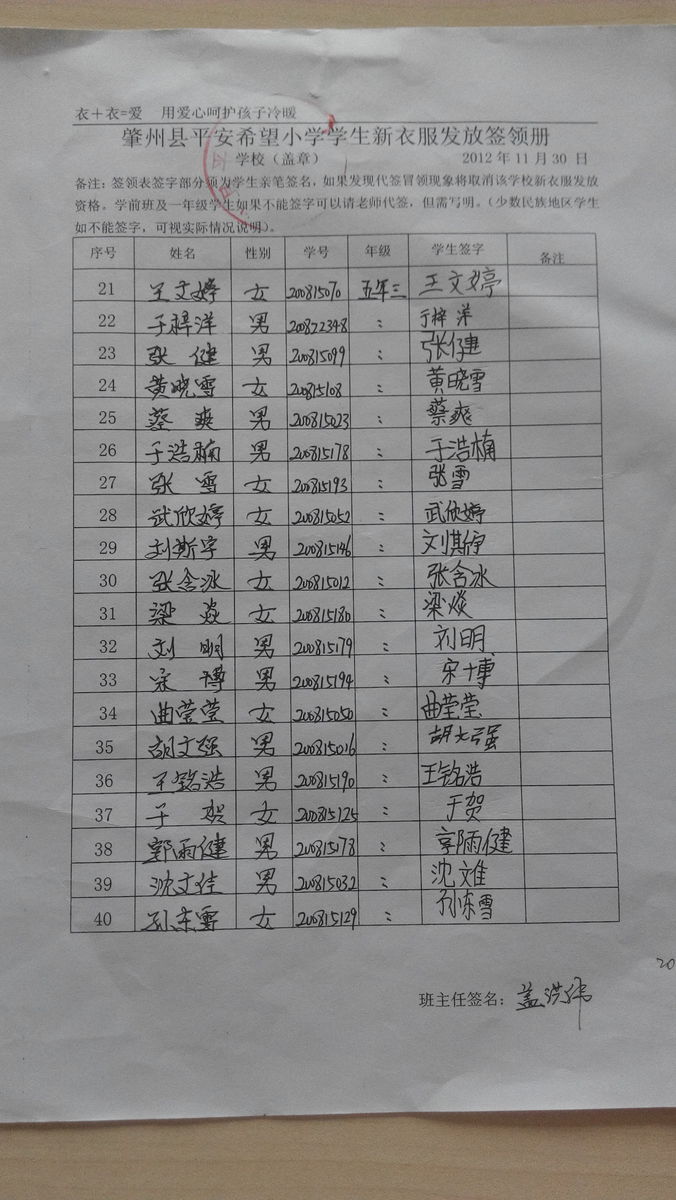 衣+衣=爱 用爱心呵护孩子冷暖
肇州县平安希望小学学生新衣服发放签领册
学校(盖章) 2012年11月30日
备注:签领表签字部分须为学生亲笔签名,如果发现代签冒领现象将取消该学校新衣服发放
资格。学前班及一年级学生如果不能签字可以请老师代签,但需写明。(少数民族地区学生
如不能签字,可视实际情况说明)。
序号 姓名 性别 学号 年级 学生签字 备注
21 王文婷 女 200815070 五年三 王文婷
22 于梓洋 男 200822348 : 于梓洋
23 张健 男 200815099 : 张健
24 黄晓雪 女 200815108 : 黄晓雪
25 蔡爽 男 200815023 : 蔡爽
26 于浩楠 男 200815178 : 于浩楠
27 张雪 女 200815193 : 张雪
28 武欣婷 女 200815052 : 武欣婷
29 刘斯宇 男 200815146 :
30 张含冰 女 200815012 : 张含冰
31 梁焱 女 200815180 : 梁焱
32 刘明 男 200815179 : 刘明
33 宋博 男 200815194 : 宋博
34 曲莹莹 女 200815050 : 曲莹莹
35 胡文强 男 200815016 : 胡文强
36 王铭浩 男 200815190 : 王铭浩
37 于贺 女 200815125 : 于贺
38 郭雨健 男 200815178 : 郭雨健
39 沈文佳 男 200815032 : 沈文佳
40 孙冻雪 女 200815129 : 孙冻雪
20
班主任签名: 盖洪伟